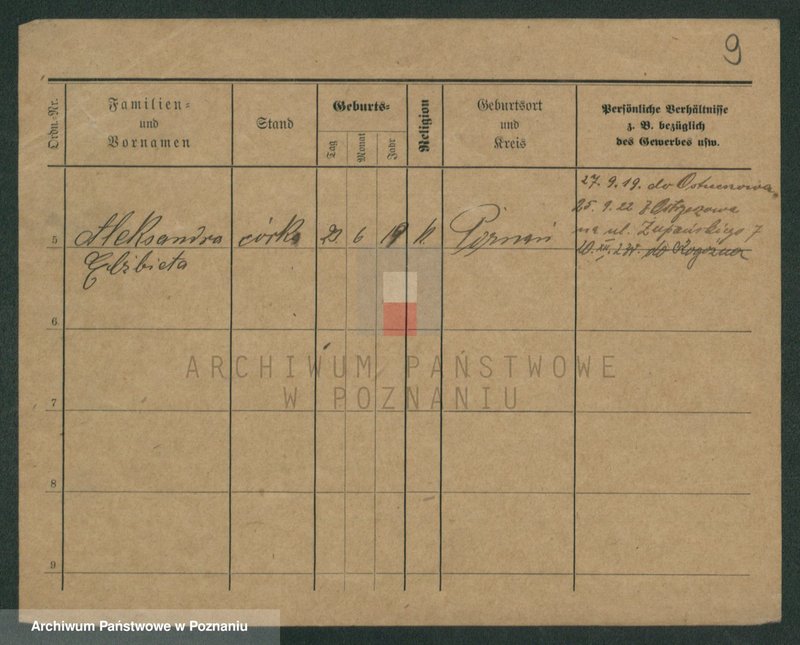 9
Ordn.-Nr.
Familien-
und
Vornamen
Stand
Geburts-
Tag
Monat
Jahr
Religion
Geburtsort
und
Kreis
Persönliche Verhältnisse
z. B. bezüglich
des Gewerbes usw.
27. 9. 19. do
25. 9. 22 z Ostrzeszowa
na ul. Żupańskiego 7
do Rogoźna
5
Aleksandra
Elżbieta
córka
6
19
k.
Poznań
6
ARCHIWUM PAŃSTWOWE
W POZNANIU
7
8
9
Archiwum Państwowe w Poznaniu